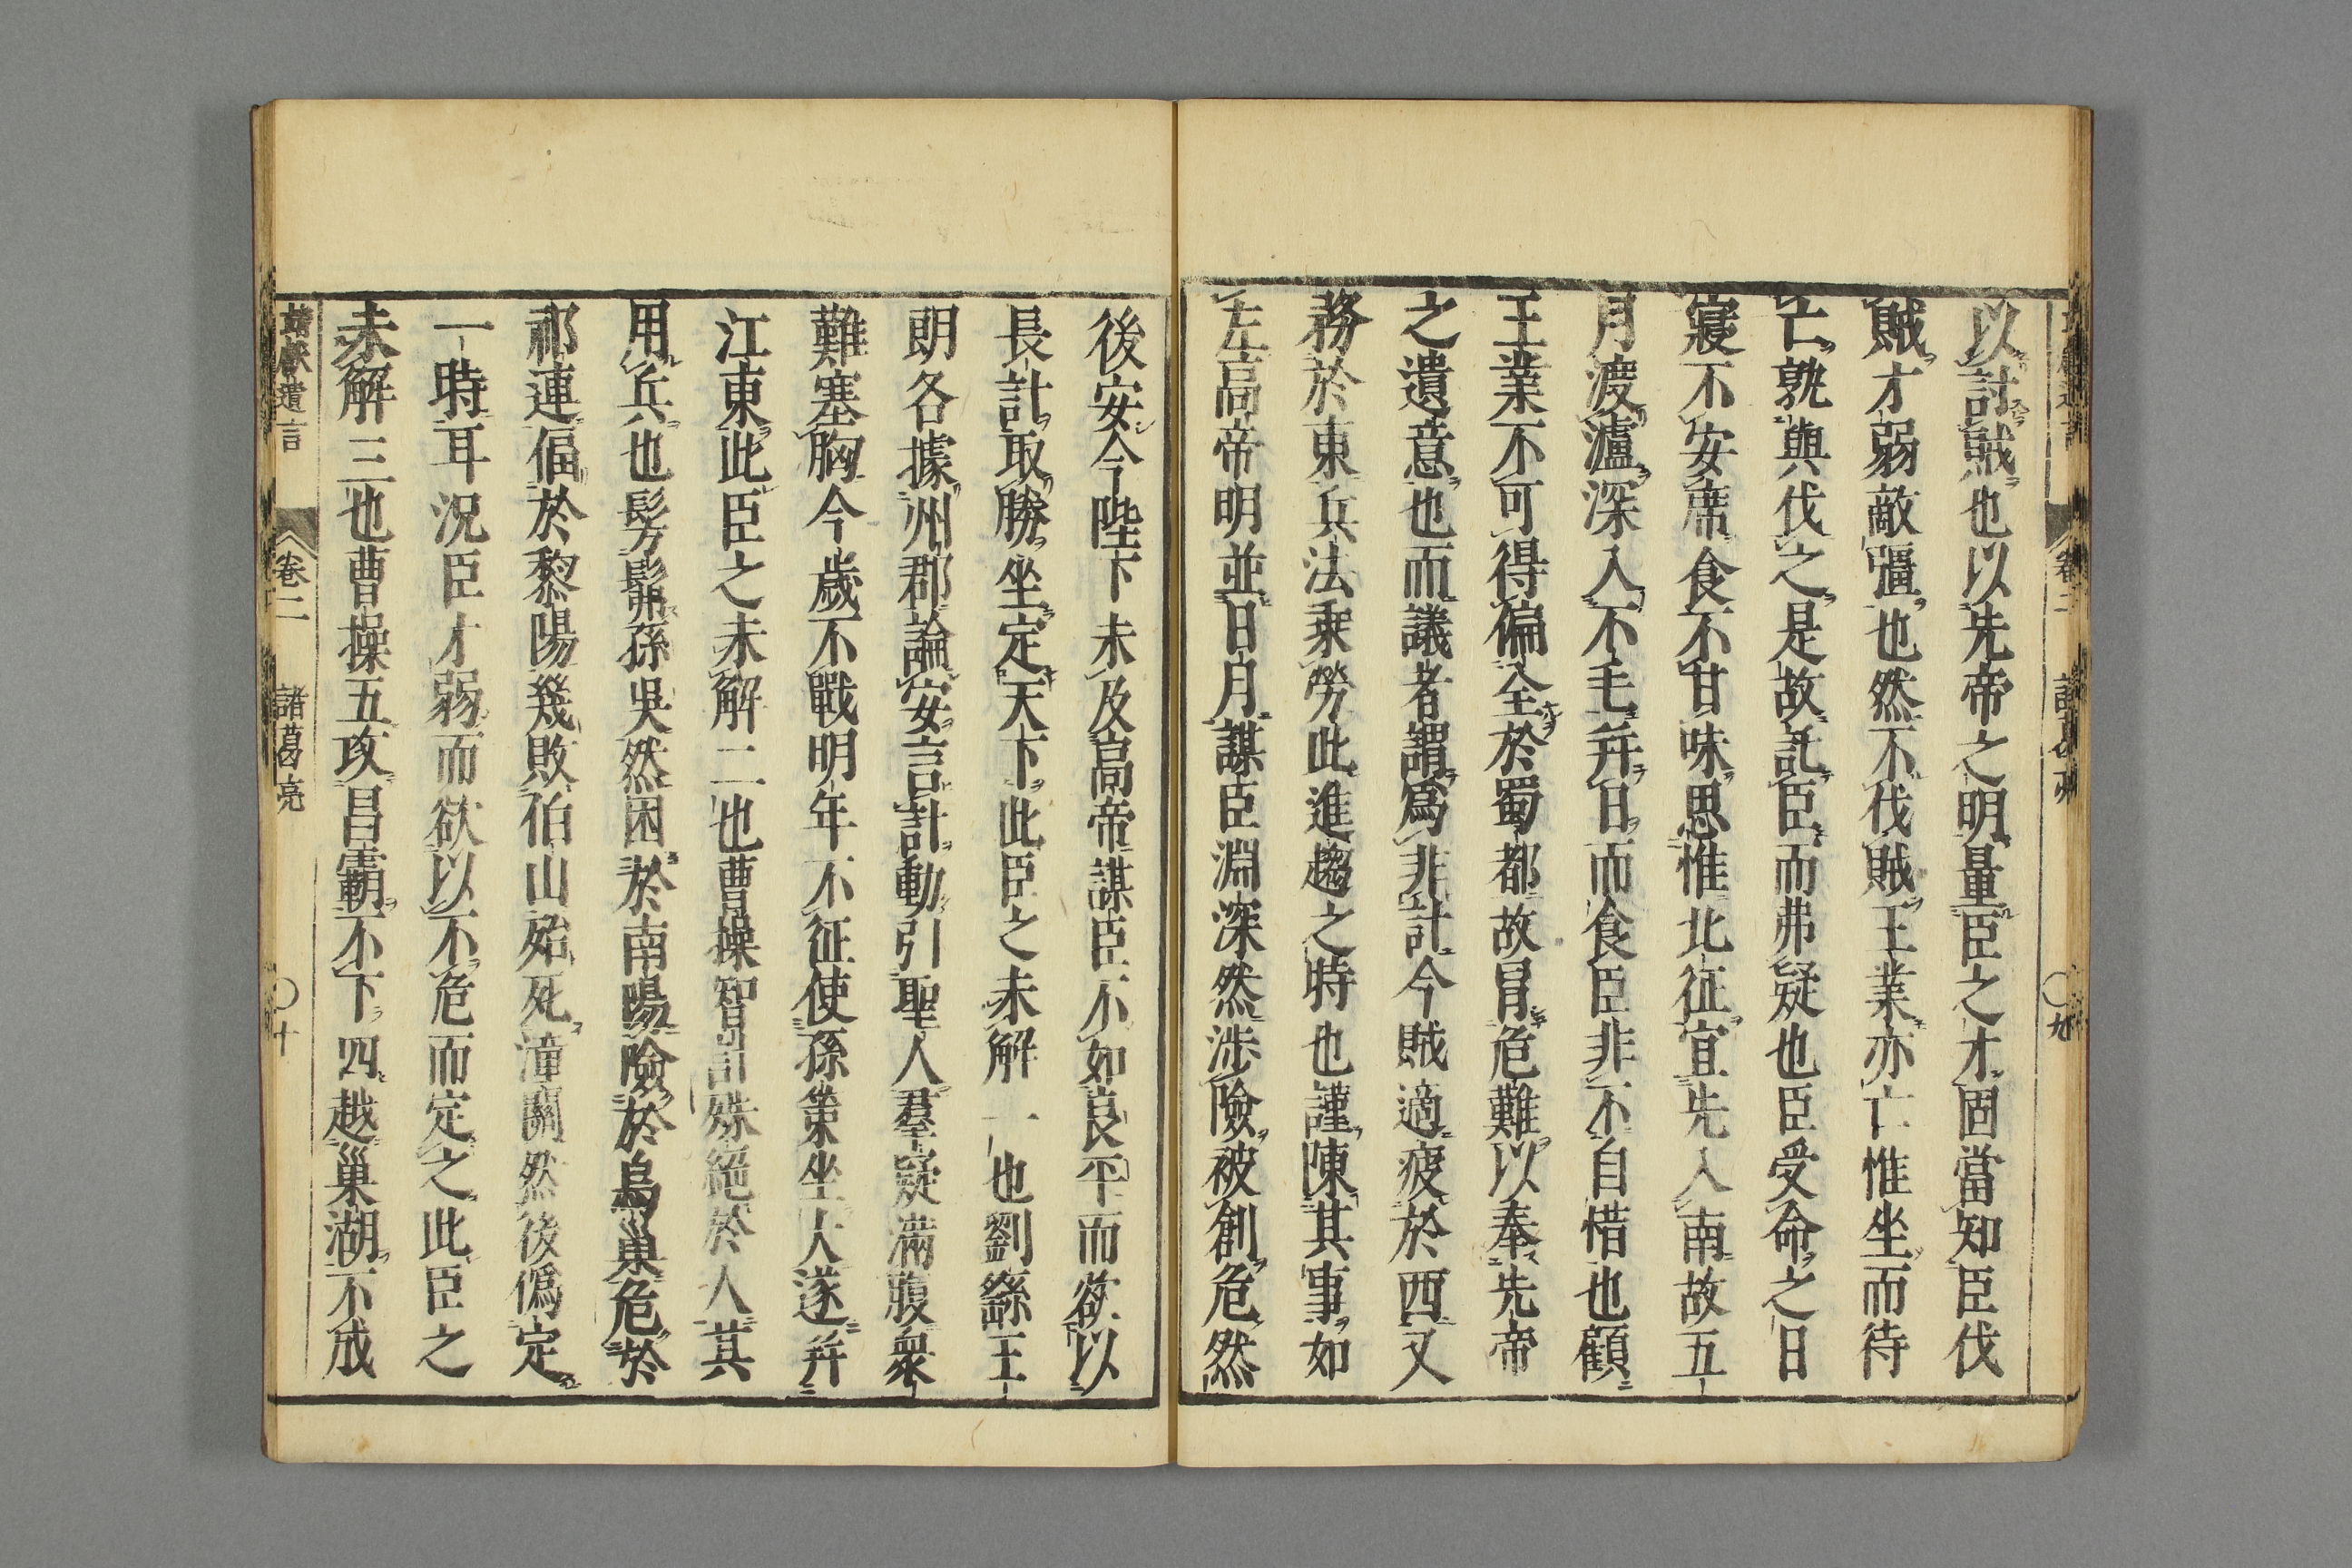 以討賊也以先帝之明量臣之才固當知臣伐
賊才弱敵彊也然不伐賊王業亦亡惟坐而待
亡孰與伐之是故託臣而弗疑也臣受命之日
寢不安席食不甘味思惟北征宜先入南故五
月渡瀘深入不毛并日而食臣非不自惜也顧
王業不可得偏全於蜀都故冒危難以奉先帝
之遺意也而議者謂爲非計今賊適疲於西又
務於東兵法乘勞此進趨之時也謹陳其事如
左高帝明並日月謀臣淵深然涉險被創危然
後安今陛下未及高帝謀臣不如良平而欲以
長計取勝坐定天下此臣之未解一也劉繇王
朗各據州郡論安言計動引聖人羣疑滿腹衆
難塞胸今歲不戰明年不征使孫策坐大遂并
江東此臣之未解二也曹操智計殊絕於人其
用兵也髣髴孫吳然困於南陽險於烏巢危於
祁連偪於黎陽幾敗伯山殆死潼關然後僞定
一時耳況臣才弱而欲以不危而定之此臣之
未解三也曹操五攻昌霸不下四越巢湖不成
靖獻遺言 卷二 諸葛亮 〇十